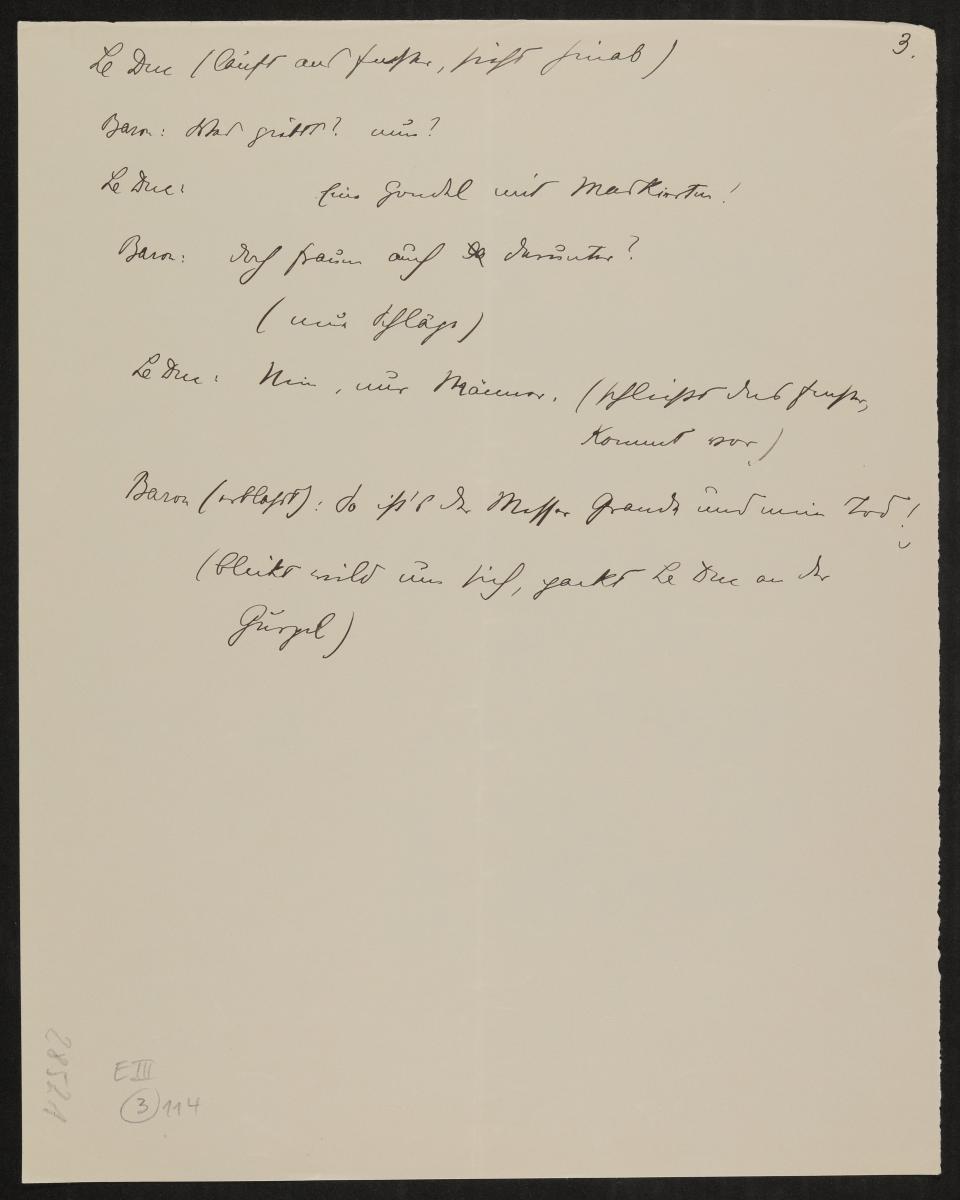 3.
Le Duc (läuft ans Fenster, sieht hinab)
Baron: Was gibts? nun?
Le Duc: Eine Gondel mit Maskierten!
Baron: Doch Frauen auch darunter?
(neue Schläge)
Le Duc: Nein, nur Männer. (schließt das Fenster,
kommt vor)
Baron (erblasst): So ist's der Messer Grande und mein Tod!
(blickt wild um sich, packt Le Duc an der
Gurgel)
E III
3 114
28521